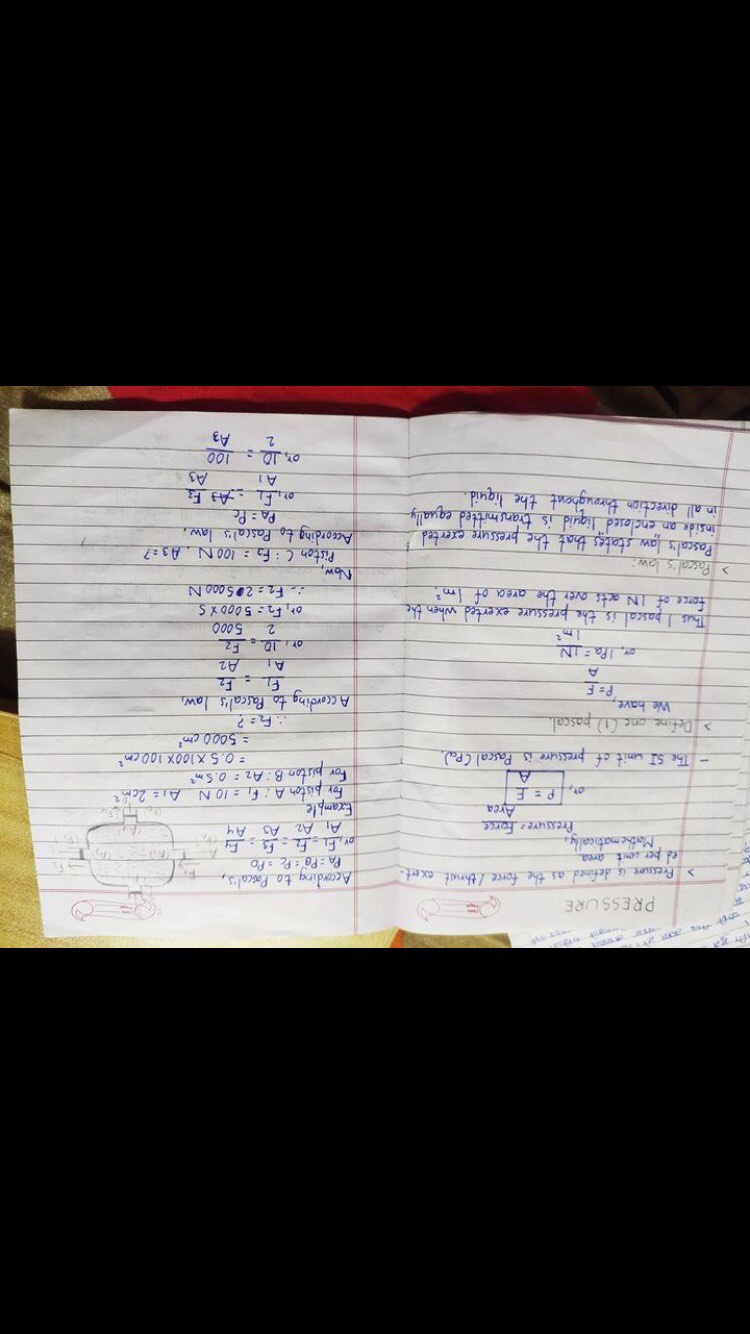 PRESSURE
> Pressure is defined as the force / thrust exert-
ed per unit area.
Mathematically,
Pressure = Force
Area
or, P = F
A
- The SI unit of pressure is Pascal (Pa).
> Define one (1) pascal.
We have,
P = F
A
or, 1Pa = 1N
1m²
Thus 1 pascal is the pressure exerted when the
force of 1N acts over the area of 1m².
> Pascal's law:
Pascal's law states that the pressure exerted
inside an "enclosed" liquid is transmitted equally
in all direction throughout the liquid.
According to Pascal's,
PA = PB = PC = PD
or, F1 = F2 = F3 = F4
A1 A2 A3 A4
F3
F4
Example
For piston A : F1 = 10 N A1 = 2cm²
For piston B : A2 = 0.5m²
= 0.5 × 100 × 100 cm²
= 5000 cm²
∴ F2 = ?
According to Pascal's law,
F1 = F2
A1 A2
or, 10 = F2
2 5000
or, F2 = 5000 × 5
∴ F2 = 25000 N
Now,
Piston C : F3 = 100 N, A3 = ?
According to Pascal's law,
PA = PC
or, F1 = A3 F3
A1 A3
or, 10 = 100
2 A3